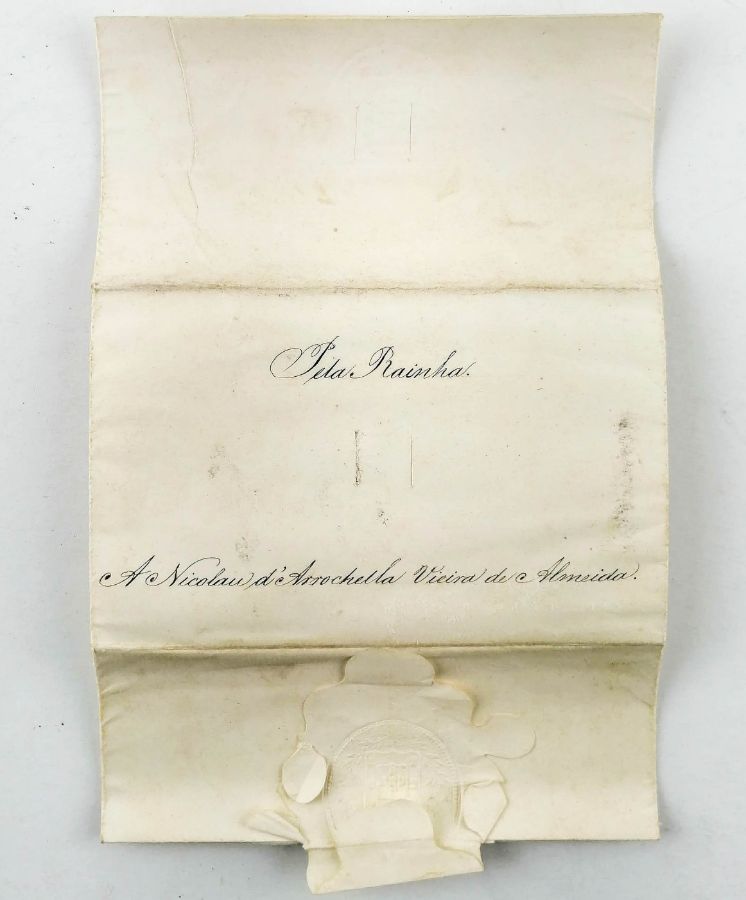 Pela Rainha.
A Nicolau d'Arrochella Vieira de Almeida.